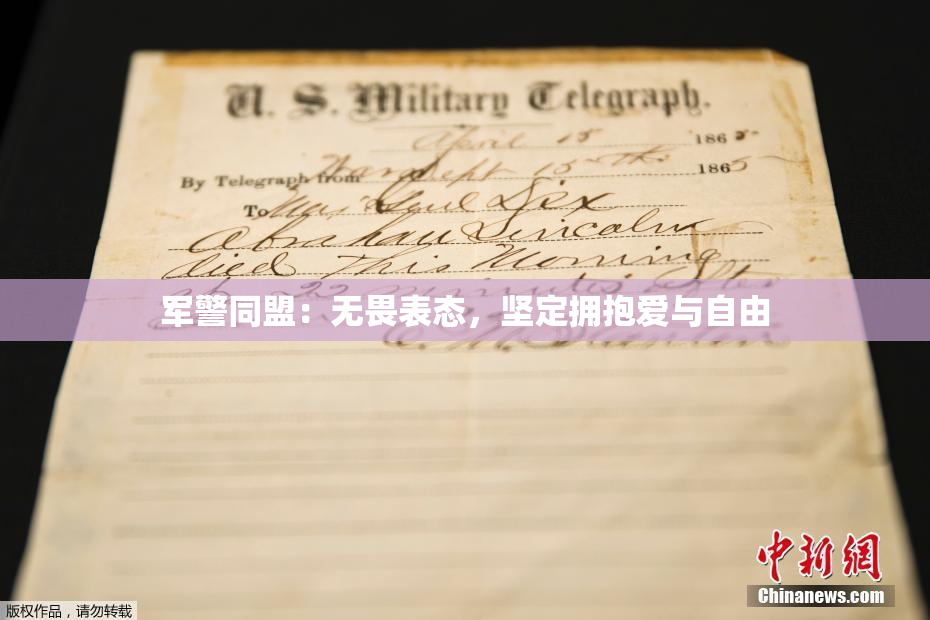 U. S. Military Telegraph.
April 15 1865
By Telegraph from War Dept 15th 1865
To Maj Genl Dix
Abraham Lincoln
died This Morning
at 22 minutes after
军警同盟：无畏表态，坚定拥抱爱与自由
E. M. Stanton
中新网
Chinanews.com
版权作品，请勿转载